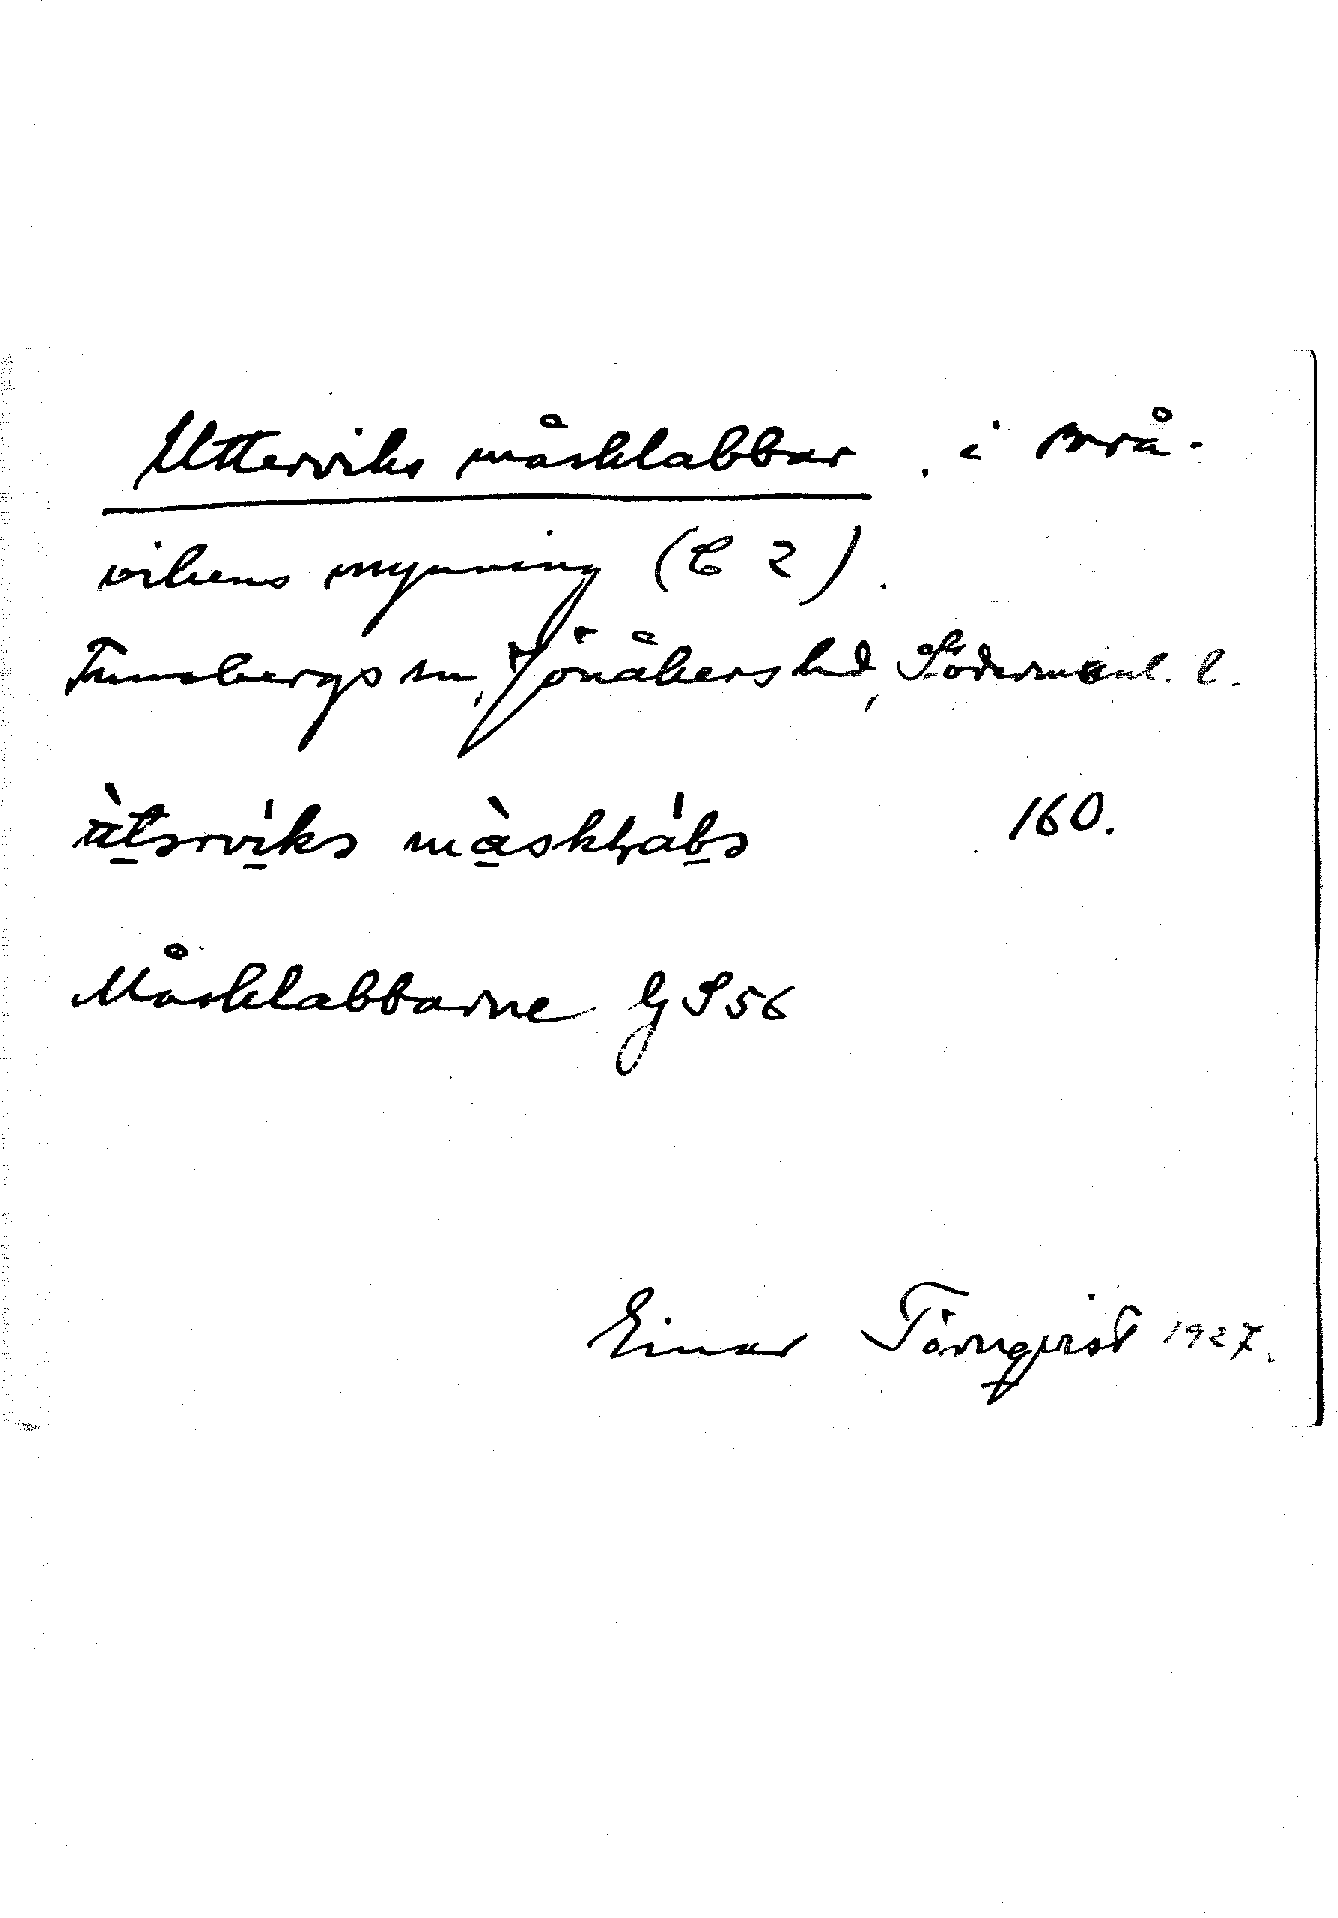 Utterviks måsklabbar, i Brå-
vikens mynning (C 2).
Tunabergs sn, Jönåkers hd, Södermanl. l.
160.
Måsklabbarne GS56
Einar Törnqvist 1927.